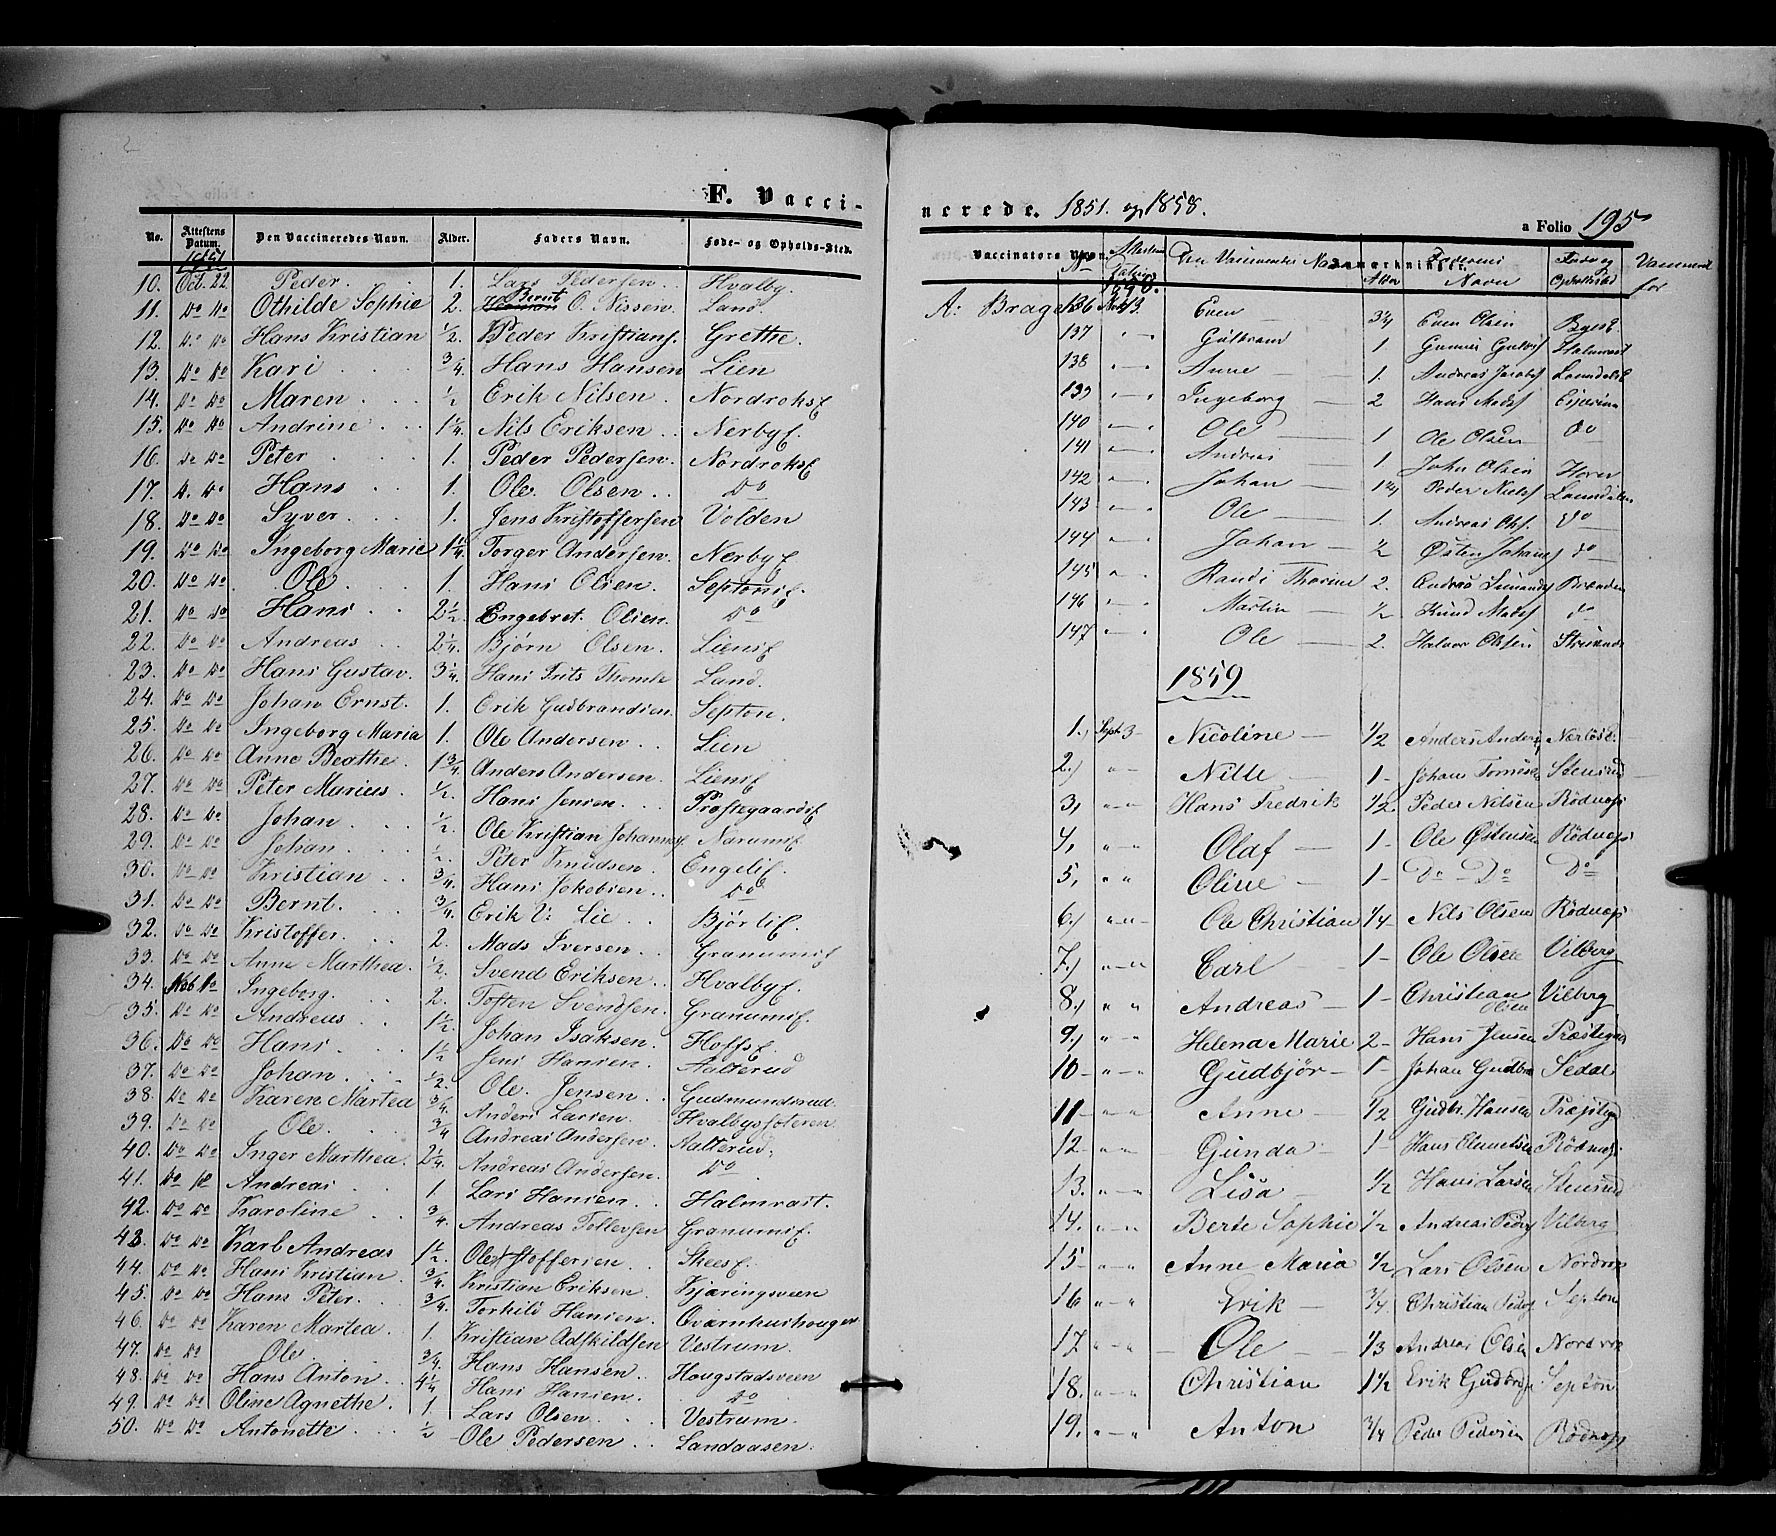 F. Vacci-
No. Attestens Datum. Den Vaccineredes Navn. Alder. Faders Navn. Føde- og Opholds-Sted.
1851
10. Oct. 22. Peder. 1. Lars Pedersen. Hvalby.
11. Do Do Othilde Sophie 2. Bernt O. Nissen. Land.
12. Do Do Hans Kristian 1/2. Peder Kristians. Grethe.
13. Do Do Kari 3/4. Hans Hansen Lien
14. Do Do Maren 1/2 Erik Nilsen. Nordrokse
15. Do Do Andrine 1 1/4. Nils Eriksen Nerbye.
16. Do Do Peter 1. Peder Pedersen. Nordrokse
17. Do Do Hans 1. Ole Olsen Do
18. Do Do Syver 1. Jens Kristoffersen Volden
19. Do Do Ingeborg Marie 1 1/4. Torger Andersen. Nerbye
20. Do Do Ole 1. Hans Olsen. Septonie.
21. Do Do Hans 2 1/2. Engebret Olsen. Do
22. Do Do Andreas 2 1/4. Bjørn Olsen. Lienie
23. Do Do Hans Gustav. 3 1/4. Hans Frits Land.
24. Do Do Johan Ernst. 1. Erik Gudbrandsen. Septon.
25. Do Do Ingeborg Maria 1. Ole Andersen Lien
26. Do Do Anne Beathe. 1 3/4. Anders Andersen. Lienie
27. Do Do Peter Marius 1/2. Hans Jensen Præstegaardse
28. Do Do Johan 1/2. Ole Kristian Johannes. Narumie
29. Do Do Johan 1/2. Peter Knudsen. Engelie.
30. Do Do Kristian 3/4. Hans Jakobsen Do
31. Do Do Bernt. 3/4. Erik V: Lie Bjørlie.
32. Do Do Kristoffer. 2. Mads Iversen Granumie
33. Do Do Anne Marthea. 1/2. Svend Eriksen. Hvalbye.
34. Ingeborg. 2. Tosten Svendsen. Granumie.
35. Do Do Andreas 1 1/2. Johan Isaksen. Hoffse.
36. Do Do Hans. 1 1/2. Jens Hansen. Aalterud
37. Do Do Johan. 1/2. Ole Jensen Gudmundsrud.
38. Do Do Karen Martea 3/4. Anders Larsen. Hvalbysfoteren.
39. Do Do Ole. 3/4 Andreas Andersen. Aalterud.
40. Do Do Inger Marthea. 2 1/4. Andreas Andersen. Do
41. Do Do Andreas 1. Lars Hansen Halmrast.
42. Do Do Karoline 3/4. Andreas Tollersen Granumie.
43. Do Do Karl Andreas 1 1/2. Ole Stoffersen Skeese.
44. Do Do Hans Kristian. 3/4. Kristian Eriksen. Kjæringsveen
45. Do Do Hans Peter. 3/4. Torkild Hansen. Qværnhushougen
46. Do Do Karen Martea. 1. Kristian Adskildsen Vestrum.
47. Do Do Ole. 3/4. Hans Hansen. Hougstadsveen
48. Do Do Hans Anton. 4 1/4. Hans Hansen. Do
49. Do Do Oline Agnethe. 1. Lars Olsen. Vestrum.
50. Do Do Antonette 1/2 Ole Pedersen Landaasen.
nerede. 1851. og 1858.
a Folio 195
Vaccinators Navn. Anmærkninger.
No Den Vaccineredes Navn Alder Faderens Navn Føde og Opholdssted
1858.
A: Brager 136 13. Even 3 1/4 Even Olsen
137 Gulbrand 1 Halmrast
138 Anne 1.
139 Ingeborg 2 Hans
140 Ole 1 Ole Olsen do
141 Andreas 1 John Olsen
142 Johan 1 3/4 Peder
143 Ole 1. Andreas do
144 Johan 1/2 Østen do
145 Randi Thorine 2. Andreas
146 Martin 1/2 do
147 Ole 2. Halvor Olsen
1859
1. Sept. 3 Nicoline 1/2 Anders Anders
2. Nille 1 Johan Stensrud
3. Hans Fredrik 1/2 Peder Nilsen Rödnæs
4. Olaf 1 Ole Østensen Rödnæs
5. Oline 1 Do Do Do
6. Ole Christian 1/4 Nils Olsen Rödnæs
7. Carl 1 Ole Olsen Vilberg
8. Andreas 1 Christian Olsen Vilberg
9. Helena Marie 2 Hans Jensen Præstegrd
10 Gudbjör 1 Johan Gudbr Sedal
11 Anne 1/2 Gudbr. Hansen Præstegd
12 Gunda 1 Hans Rödnæs
13. Lisa 1/2 Hans Larsen Stensrud
14. Berte Sophie 1/2 Andreas Peders Vilberg
15 Anne Maria 1/2 Lars Olsen
16 Erik 3/4 Christian Peders Septon
17 Ole 1/3 Andreas Olsen
18. Christian 1 1/2 Erik Gudbr Septon
19. Anton 3/4 Peder Pedersen Rödnæs